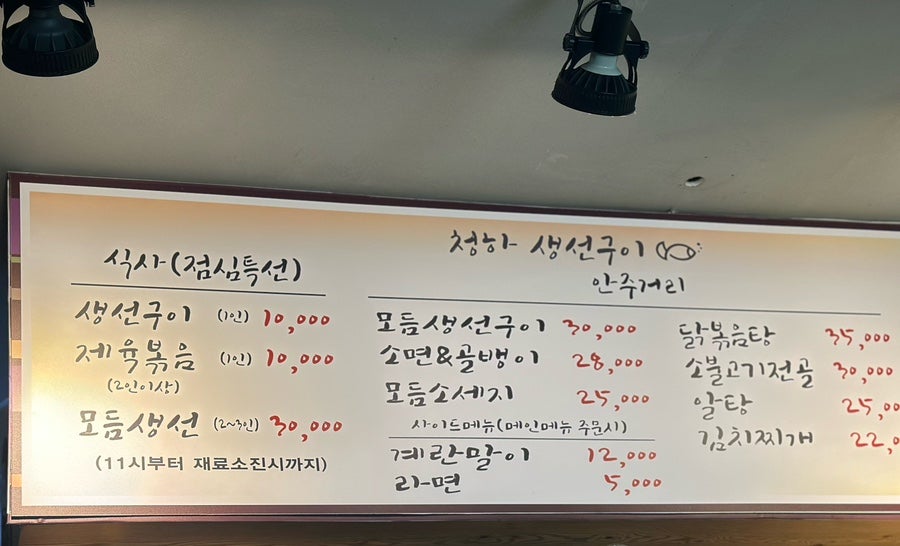 식사(점심특선)
생선구이 (1인) 10,000
제육볶음 (1인) 10,000
(2인이상)
모듬생선 (2~3인) 30,000
(11시부터 재료소진시까지)
청하 생선구이
안주거리
모듬생선구이 30,000
소면&골뱅이 28,000
모듬소세지 25,000
사이드메뉴(메인메뉴 주문시)
계란말이 12,000
라면 5,000
닭볶음탕 35,000
소불고기전골 30,000
알탕 25,00
김치찌개 22,0